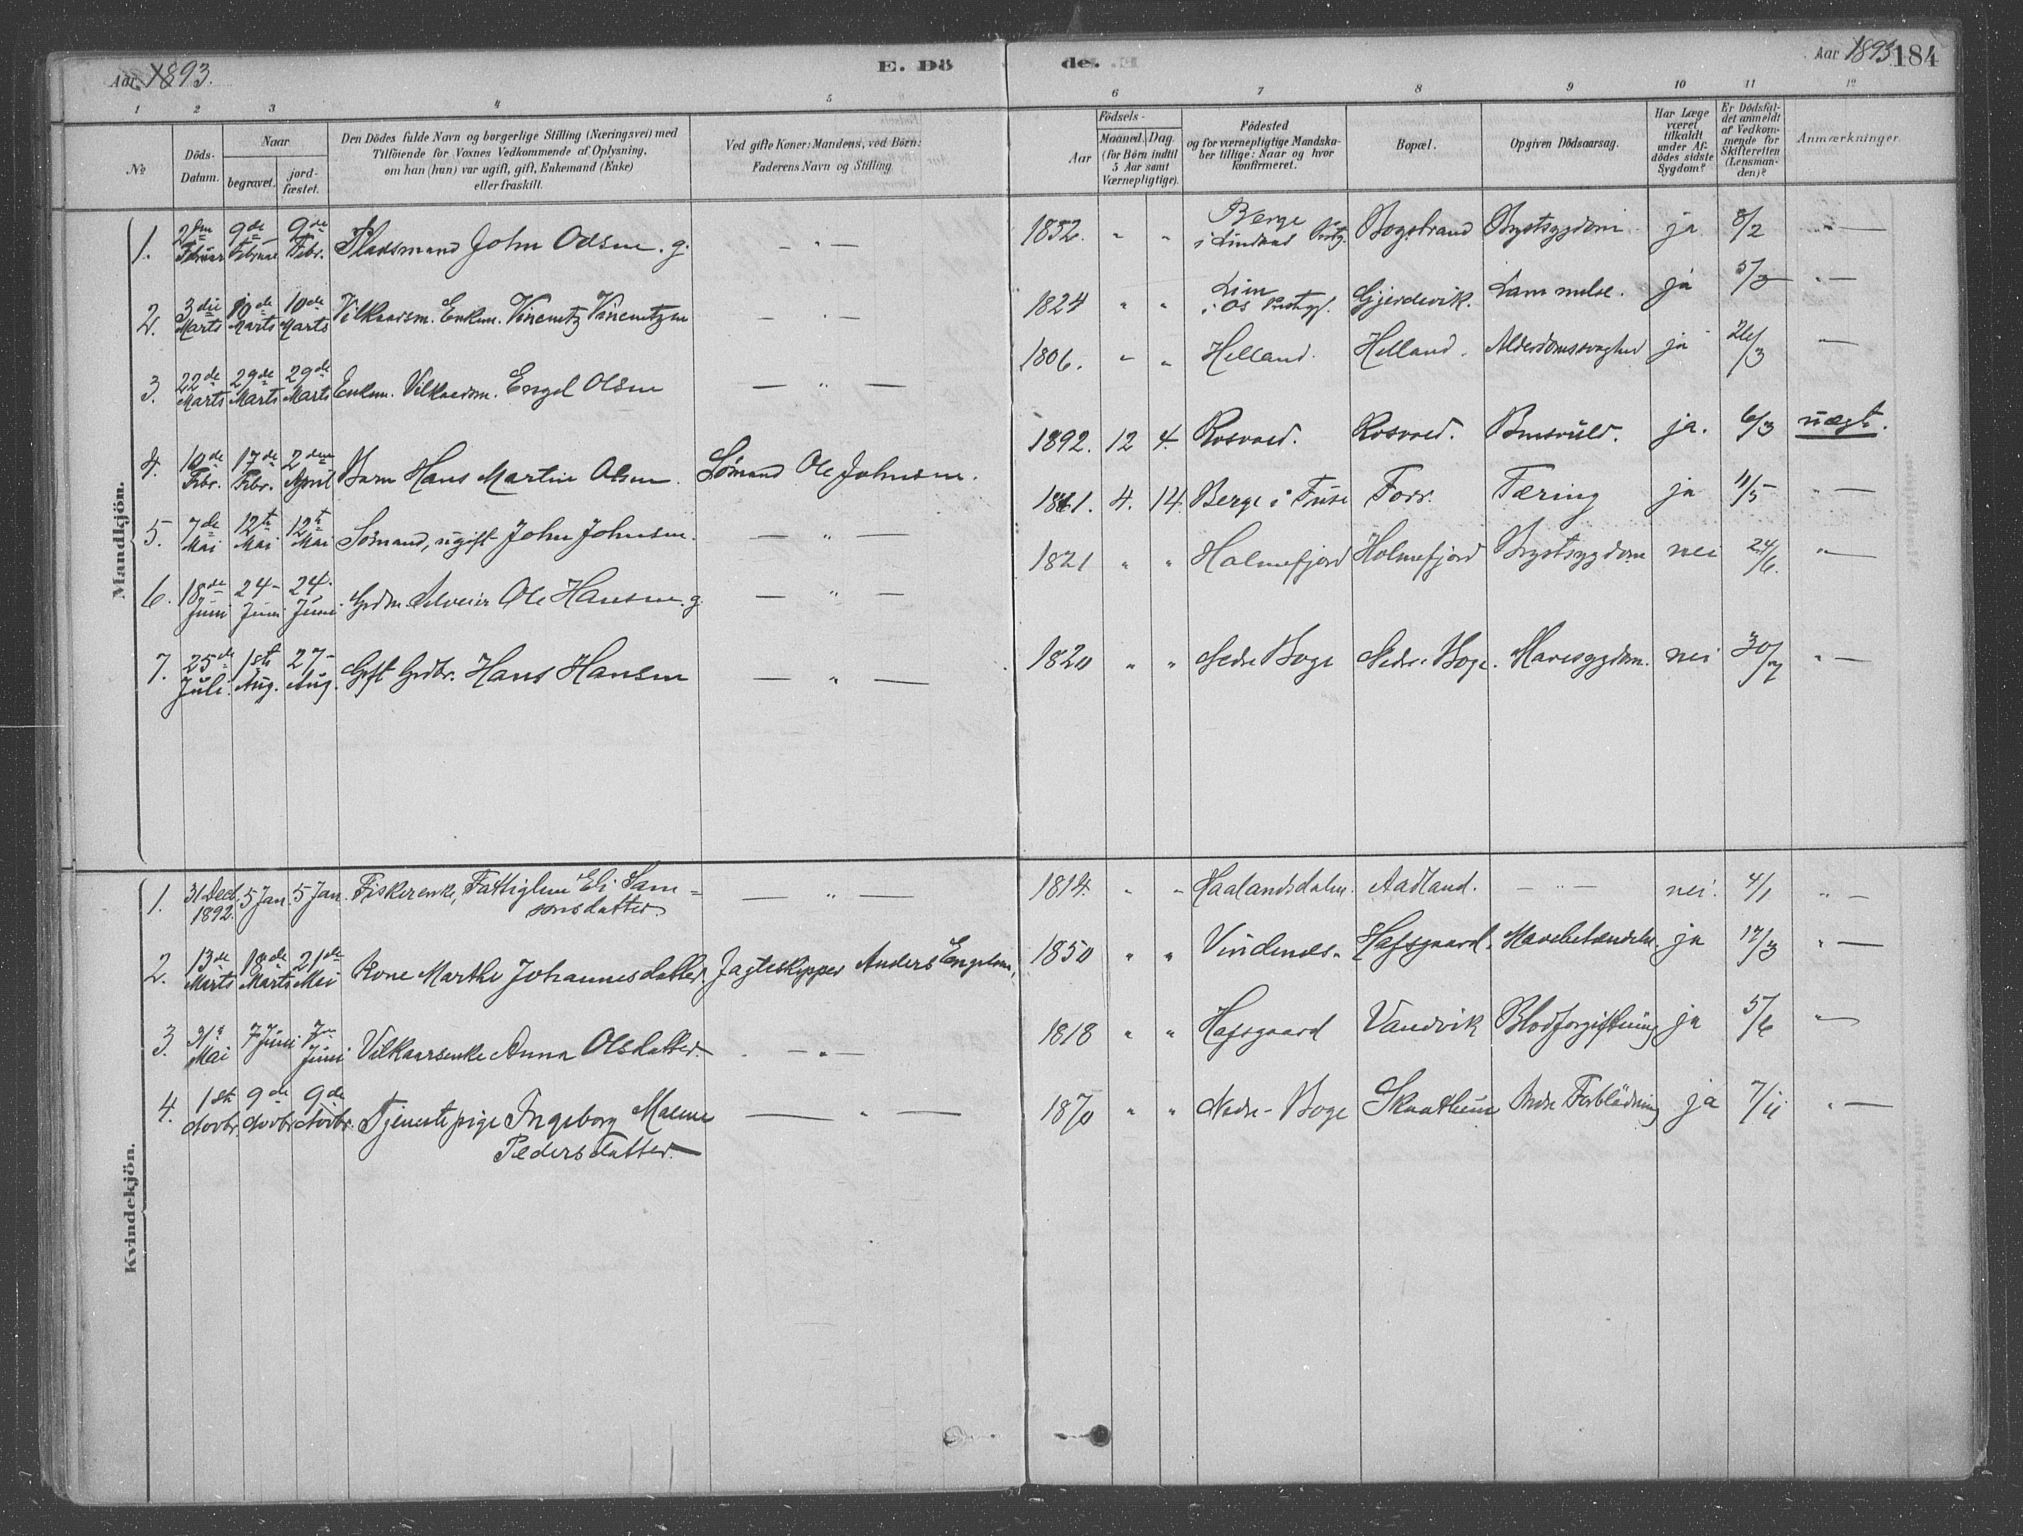 Aar 1893.
E. Dö
de.
Aar 1893
184
1 2 3 4 5 6 7 8 9 10 11 12
No
Döds-Datum.
Naar
begravet.
jord-fæstet.
Den Dödes fulde Navn og borgerlige Stilling (Næringsvei) med
Tilföiende for Voxnes Vedkommende af Oplysning,
om han (hun) var ugift, gift, Enkemand (Enke)
eller fraskilt.
Ved gifte Koner: Mandens, ved Börn:
Faderens Navn og Stilling
Födsels-
Aar
Maaned. Dag.
(for Börn indtil
5 Aar samt
Værnepligtige).
Födested
og for værnepligtige Mandska-
ber tillige: Naar og hvor
konfirmeret.
Bopæl.
Opgiven Dödsaarsag.
Har Læge
været
tilkaldt
under Af-
dödes sidste
Sygdom?
Er Dödsfal-
det anmeldt
af Vedkom-
mende for
Skifteretten
(Lensman-
den)?
Anmærkninger.
Mandkjön.
1. 2den Februar 9de Februar 9de Febr. Pladsmand John Odsen. g. — " — 1852. " " Berge i Lindaas Prstg. Bogstrand Brystsygdom ja 8/2 " —
2. 3die Marts 10de Marts 10de Marts Vilkaarsm. Enkem. Vincentz Vincentzen — " — 1824 " " Lien i Os Prstgj. Gjerdevik. Lammelse. ja 5/3 " —
3. 22de Marts 29de Marts 29de Marts Enkem. Vilkaarsm. Engel Olsen — " — 1806. " " Helland. Helland. Alderdomssvaghed ja 26/3 —
4. 10de Febr. 17de Febr. 2den April Barn Hans Martin Olsen. Sömand Ole Johnsen. 1892. 12 4. Rosvold. Rosvold. ja. 6/3 uægt.
5. 7de Mai 12te Mai 12te Mai Sömand, ugift John Johnsen. — " — 1861. 4. 14. Berge i Fuse Forr. Tæring ja 11/5 " —
6. 18de Juni 24- Juni 24. Juni Grdm. Selveier Ole Hansen. g. — " — 1821 " " Holmefjord Holmefjord Brystsygdom nei 24/6. " —
7. 25de Juli. 1ste Aug. 27- Aug. Gift Grdbr. Hans Hansen — " — 1820 " " Nedre Boge Nedre Boge. Mavesygdom. nei 30/7 " —
Kvindekjön.
1. 31 Dect. 1892. 5 Jan. 5 Jan. Fiskerenke, Fattiglem Eli Sam=
sonsdatter. — " — 1814. " " Haalandsdalen. Aadland. — " — nei. 4/1 " —
2. 13de Marts 18de Marts 21de Mei Kone Marthe Johannesdatter. Jagteskipper Anders Engelsen. 1850 " " Vindenes. Hafsgaard. Mavebetændelse. ja 17/3 " —
3. 31te Mai 7 Juni 7de Juni Vilkaarsenke Anna Olsdatter. — " — 1818 " " Hafsgaard Vandvik Blodforgiftning ja 5/6 " —
4. 1ste Novbr. 9de Novbr. 9de Novbr. Tjenestepige Ingeborg Malene
Pedersdatter. — " — 1870 " " Nedre-Boge Skaatheim Indre Forblödning ja 7/11 " —